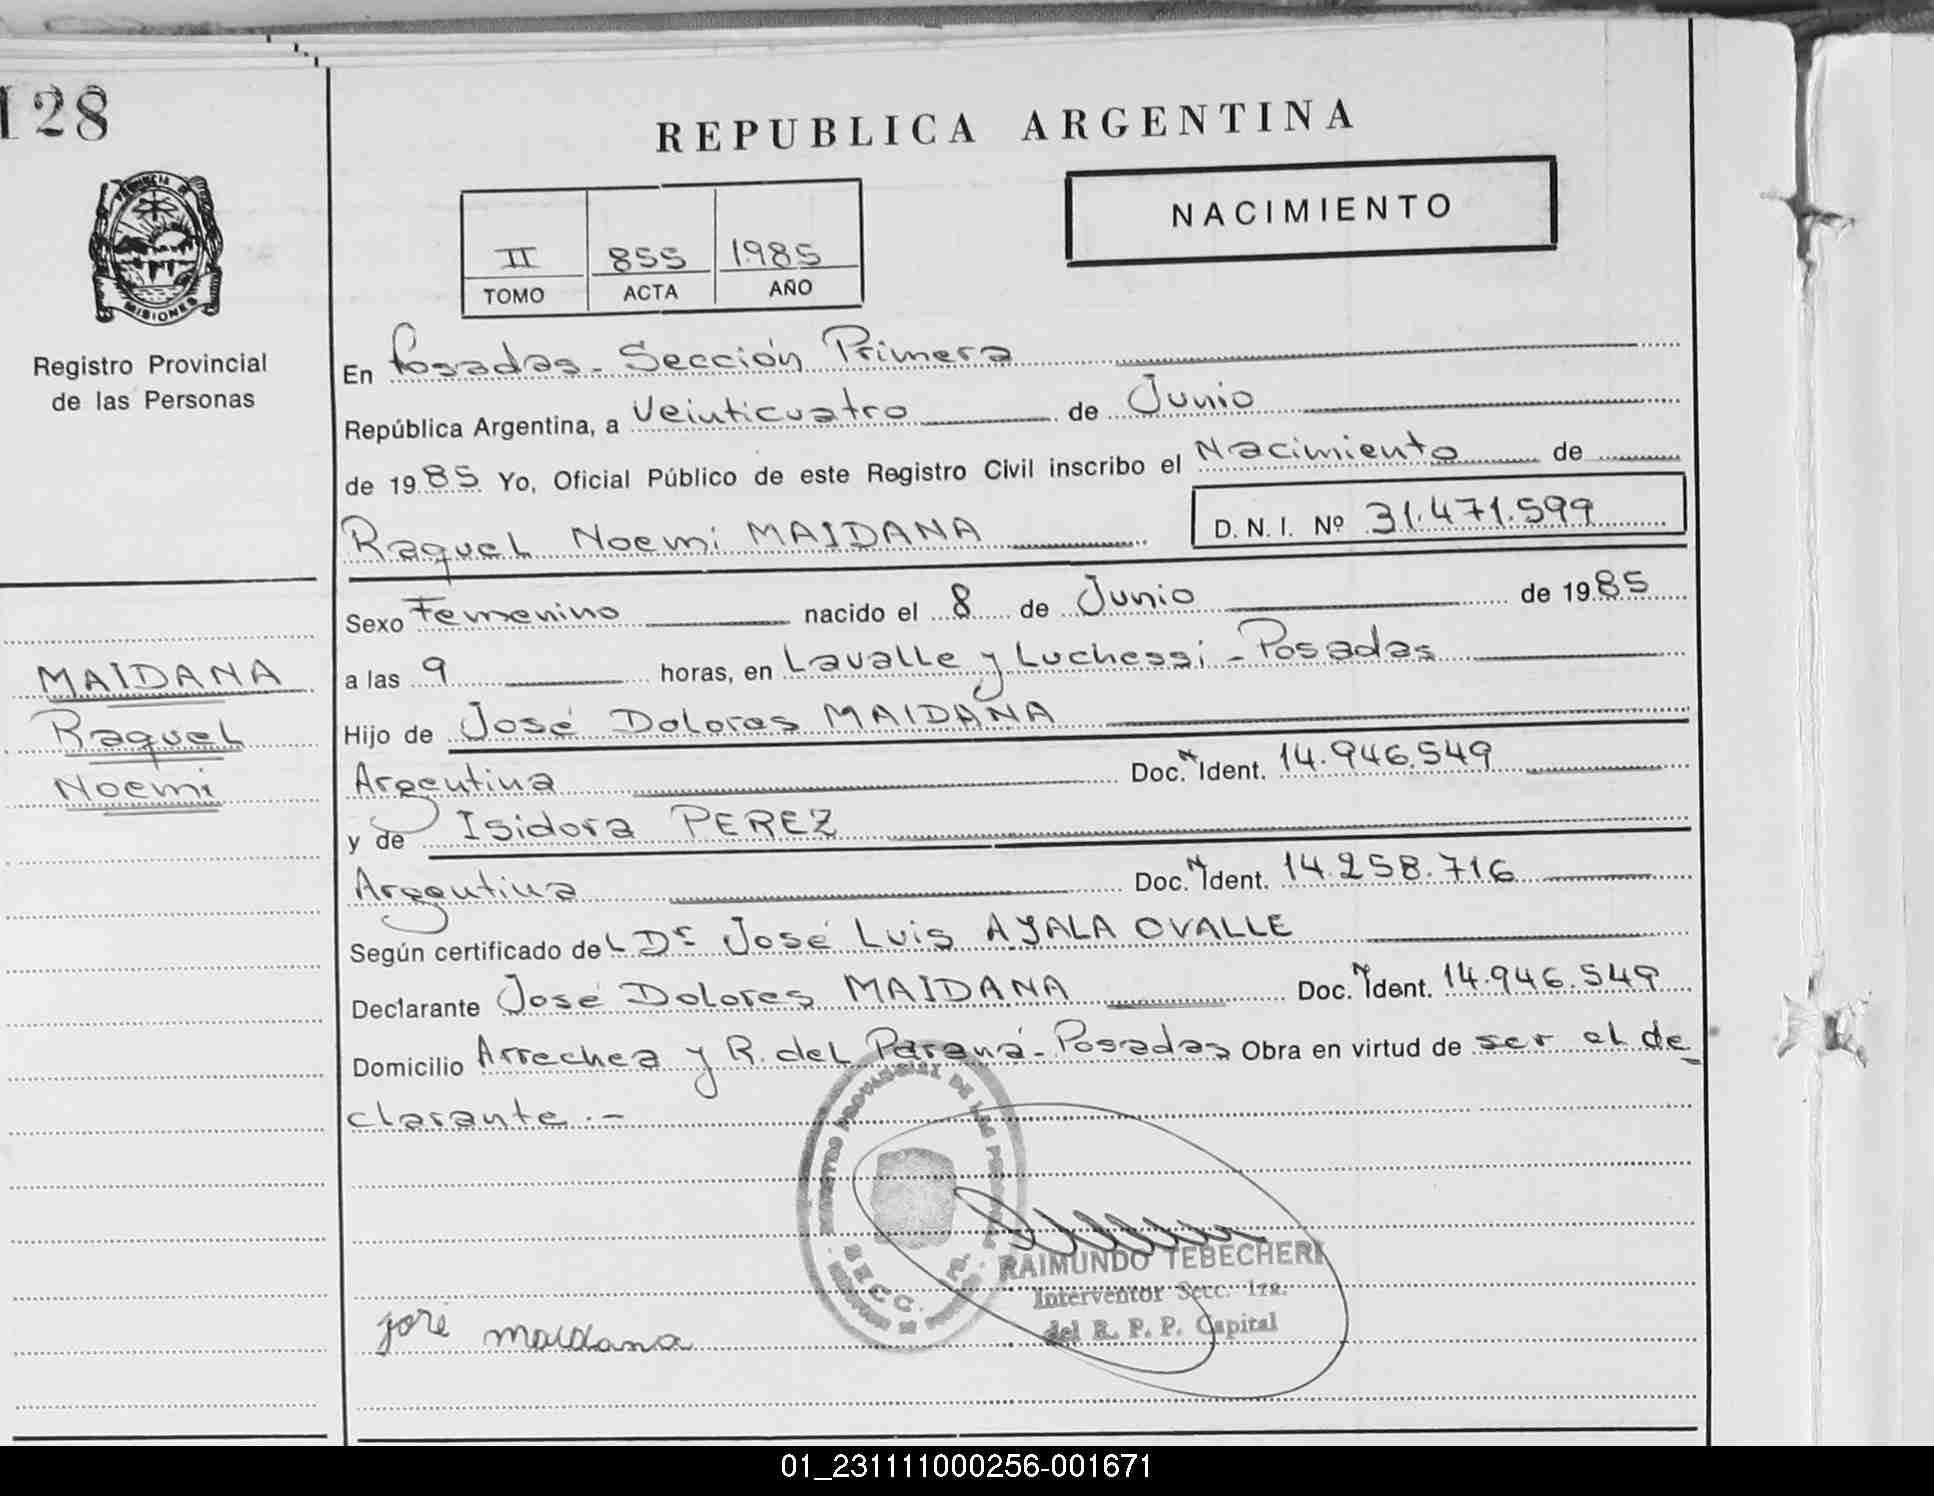 128
REPUBLICA ARGENTINA
NACIMIENTO
II 855 1985
TOMO ACTA AÑO
PROVINCIA DE
MISIONES
Registro Provincial
de las Personas
En Posadas - Sección Primera
República Argentina, a Veinticuatro de Junio
de 1985 Yo, Oficial Público de este Registro Civil inscribo el Nacimiento de
Raquel Noemi MAIDANA D. N. I. Nº 31.471.599
Sexo Femenino nacido el 8 de Junio de 1985
a las 9 horas, en Lavalle y Luchessi - Posadas
Hijo de José Dolores MAIDANA
Argentina Doc. N Ident. 14.946.549
y de Isidora PEREZ
Argentina Doc. N Ident. 14.258.716
Según certificado del Dr José Luis AYALA OVALLE
Declarante José Dolores MAIDANA Doc. N Ident. 14.946.549
Domicilio Arrechea y R. del Paraná - Posadas Obra en virtud de ser el de
clarante.-
MAIDANA
Raquel
Noemi
REGISTRO PROVINCIAL DE LAS
SECC.
RAIMUNDO TEBECHERI
Interventor Secc. 1ra.
del R. P. P. Capital
josé maidana
01_231111000256-001671